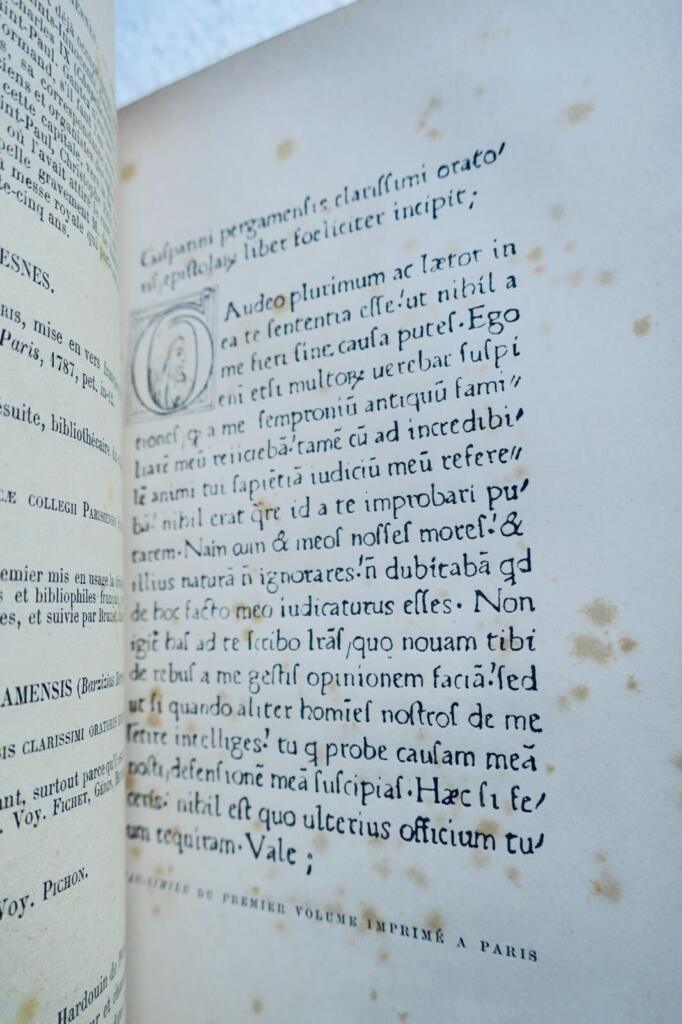 int-Paul.
Charles IX
ormand.
ciens et organistes
cette capitale
int-Paul,
où l'avait
gravement
à messe royale qui
te-cinq ans.
ESNES.
RIS, mise en vers
Paris, 1787, pet. in-12.
ésuite, bibliothécaire
CÆ COLLEGII PARISIENSIS
emier mis en usage
s et bibliophiles
es, et suivie par
AMENSIS (Barzizius
IS CLARISSIMI ORATORIS
ant, surtout parce qu'il
Voy. FICHET,
Voy. PICHON.
Hardouin de
ur et
Gasparini pergamensis clarissimi orato/
ris, epistolaꝝ liber foeliciter incipit;
GAudeo plurimum ac lætor in
ea te sententia esse, ut nihil a
me fieri sine causa putes. Ego
eni etsi multoꝝ uerebar suspi
tiones, ꝗ a me semproniū antiquū fami//
liarē meū reiiciebā, tamē cū ad incredibi/
lē animi tui sapiētiā iudiciū meū refere//
bā, nihil erat q̄re id a te improbari pu/
tarem. Nam cum & meos nosses mores, &
illius naturā n̄ ignorares, n̄ dubitabā qd
de hoc facto meo iudicaturus esses. Non
igiť has ad te scribo lr̄as, quo nouam tibi
de rebus a me gestis opinionem faciā, sed
ut si quando aliter homīes nostros de me
sētire intelliges, tu q probe causam meā
nosti, defensionē meā suscipias. Hæc si fe/
ceris, nihil est quo ulterius officium tu/
um requiram. Vale ;
AC-SIMILE DU PREMIER VOLUME IMPRIMÉ A PARIS